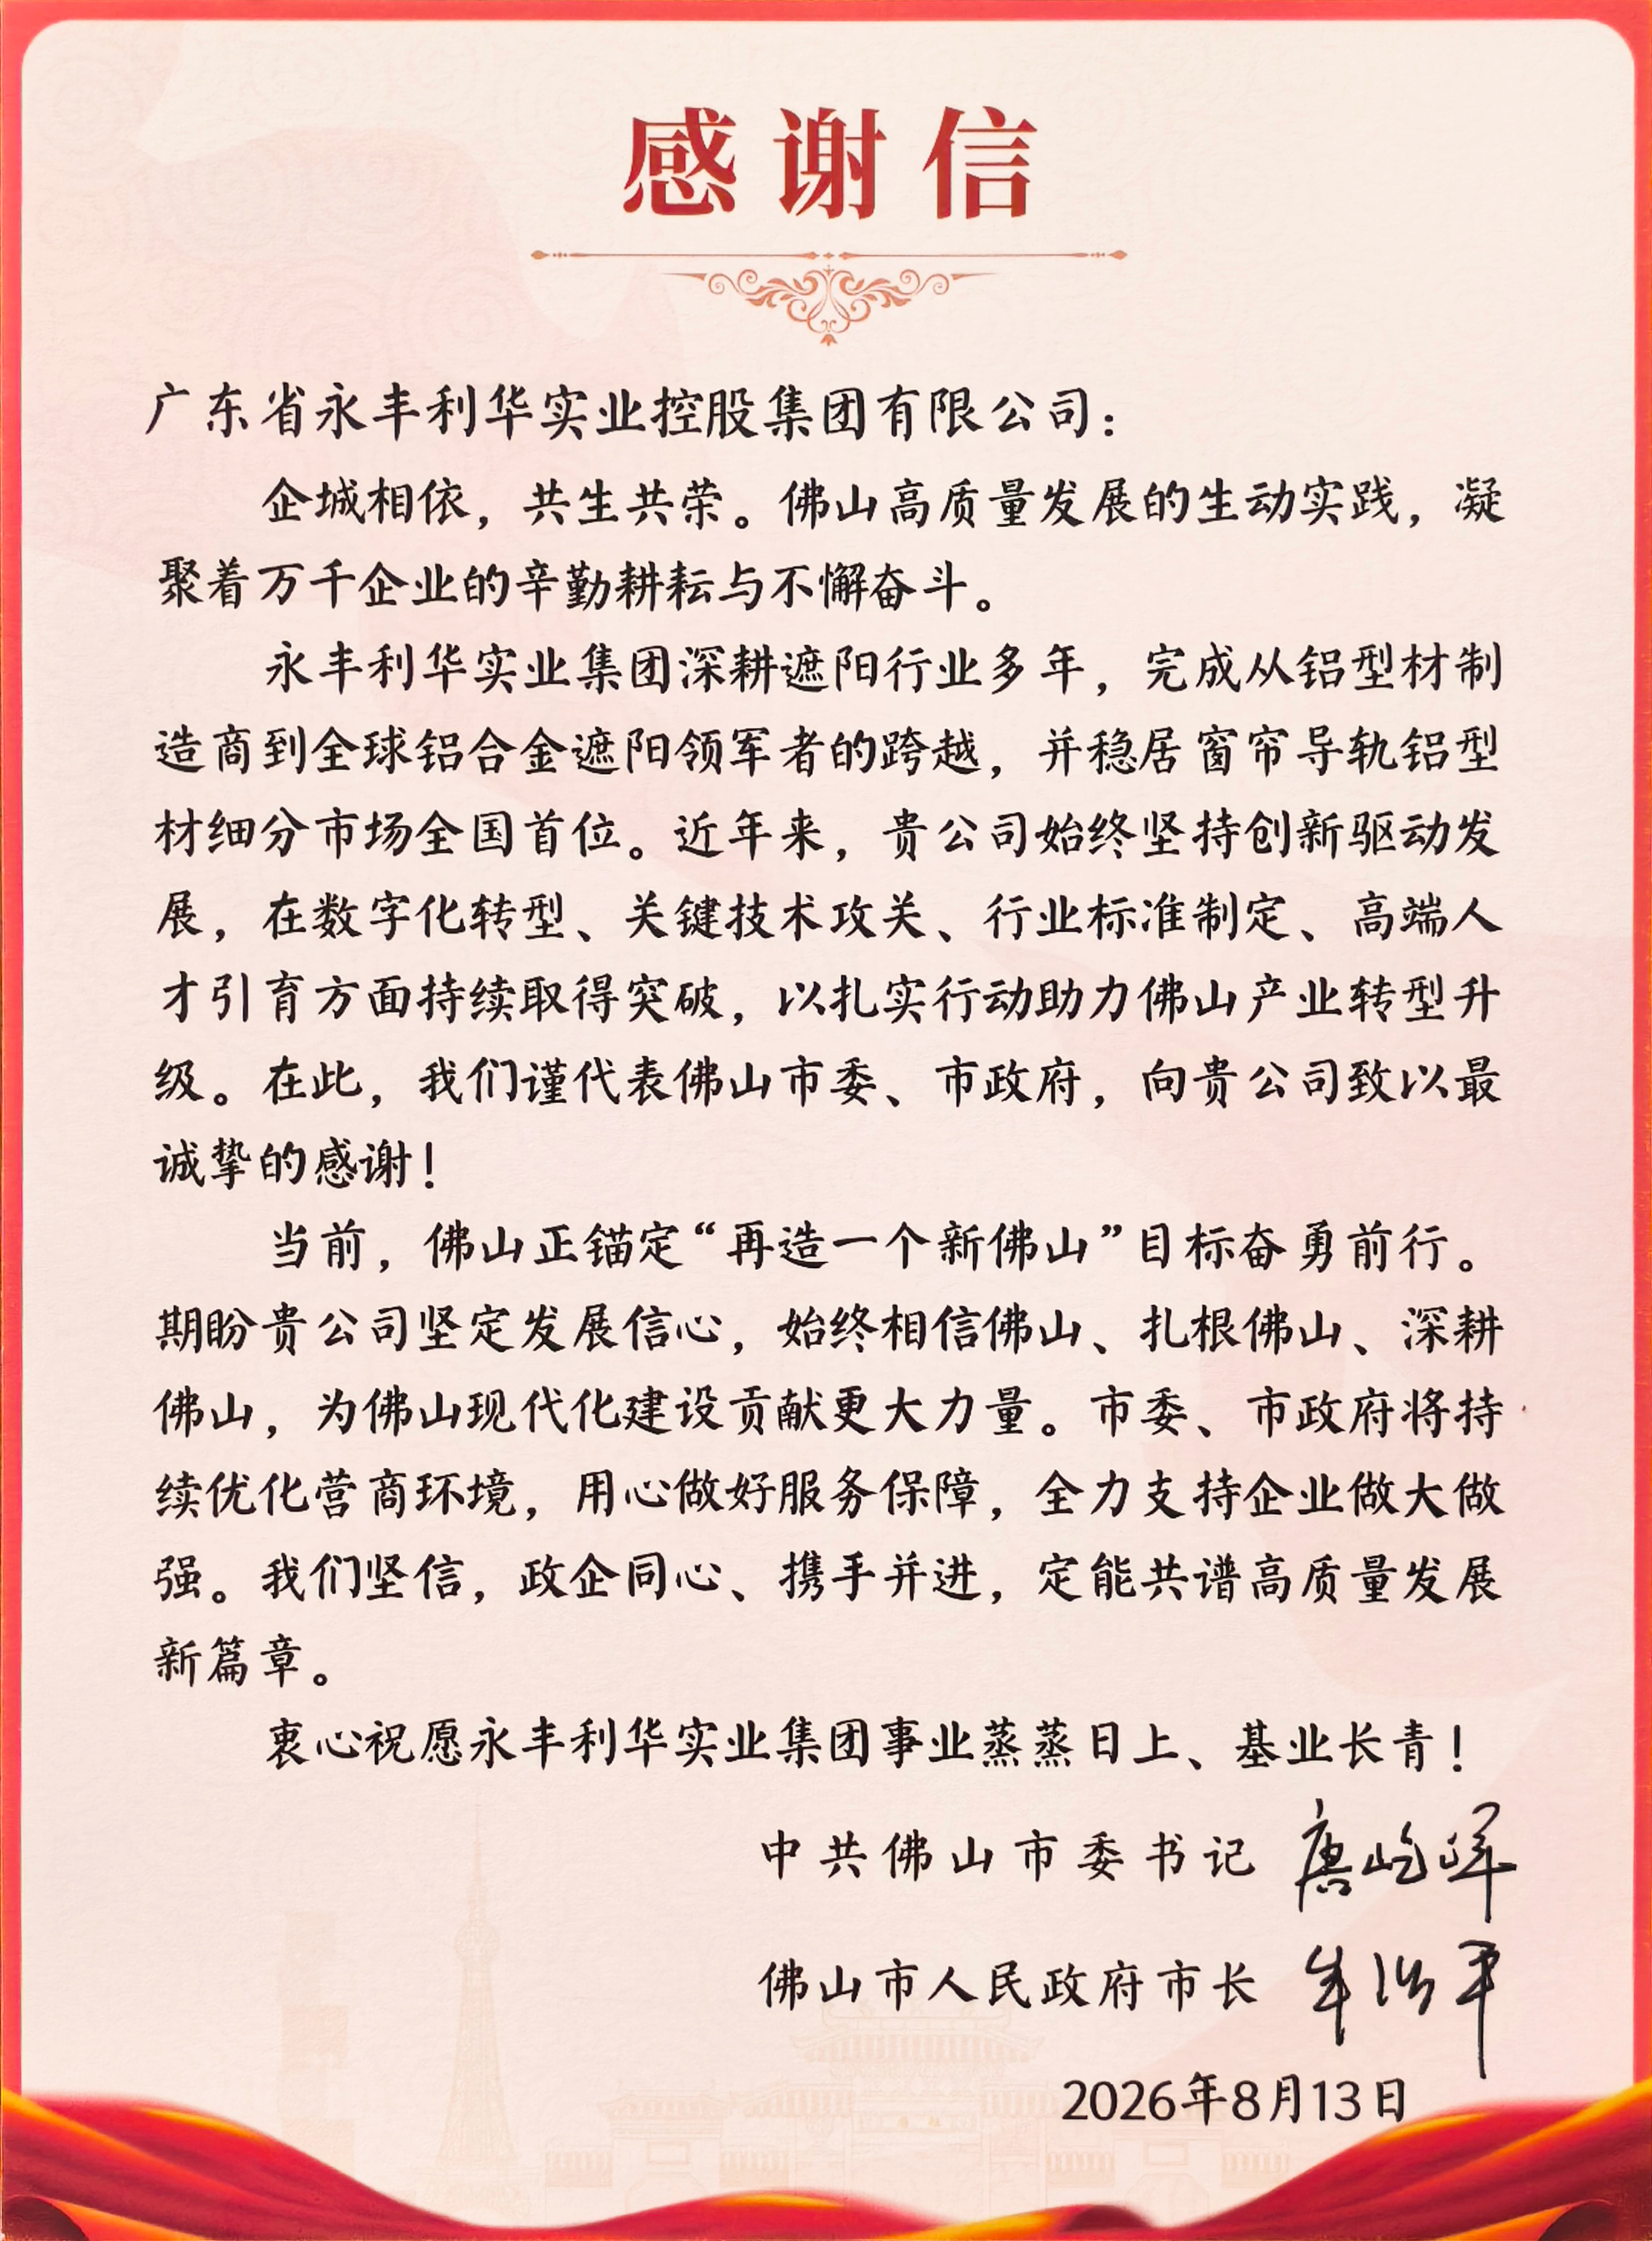 感谢信
广东省永丰利华实业控股集团有限公司：
企城相依，共生共荣。佛山高质量发展的生动实践，凝
聚着万千企业的辛勤耕耘与不懈奋斗。
永丰利华实业集团深耕遮阳行业多年，完成从铝型材制
造商到全球铝合金遮阳领军者的跨越，并稳居窗帘导轨铝型
材细分市场全国首位。近年来，贵公司始终坚持创新驱动发
展，在数字化转型、关键技术攻关、行业标准制定、高端人
才引育方面持续取得突破，以扎实行动助力佛山产业转型升
级。在此，我们谨代表佛山市委、市政府，向贵公司致以最
诚挚的感谢！
当前，佛山正锚定“再造一个新佛山”目标奋勇前行。
期盼贵公司坚定发展信心，始终相信佛山、扎根佛山、深耕
佛山，为佛山现代化建设贡献更大力量。市委、市政府将持
续优化营商环境，用心做好服务保障，全力支持企业做大做
强。我们坚信，政企同心、携手并进，定能共谱高质量发展
新篇章。
衷心祝愿永丰利华实业集团事业蒸蒸日上、基业长青！
中共佛山市委书记 唐屹峰
佛山市人民政府市长
2026年8月13日